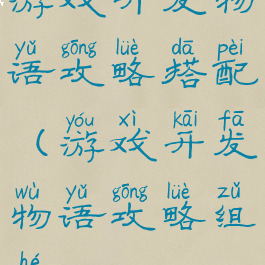 游戏开发物
yǔ gōng lüè dā pèi
语攻略搭配
yóu xì kāi fā
（游戏开发
wù yǔ gōng lüè zǔ
物语攻略组
hé